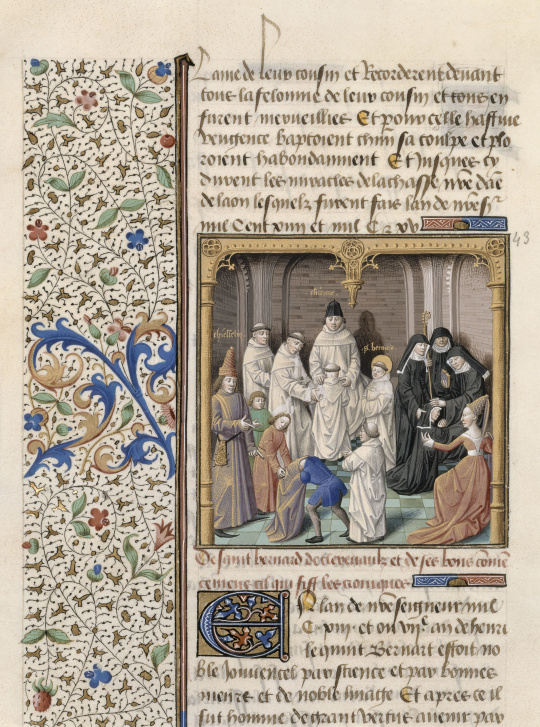 Lame de leur cousin et Recorderent deuant
tous la felonnie de leur cousin et tous en
furent merueillies Et pour celle hastiue
vengence baptoient chun sa coulpe et plo
roient habondanment Et Jusques cy
durent les miracles de la chasse nre dae
de laon lesquelz furent fais lan de nres
mil Cent xiiii et mil C & xv
43
estienne
s. bernard
De saint bernard de clereuaulx et de ses bons comē
cemens cil qui fist les croniques
En lan de nre seigneur mil
C xiii et ou viie an de henri
le quint Bernart estoit no
ble Jouuencel par science et par bonnes
meurs et de noble linaige Et apres ce il
fut homme de grant vertus auenir par